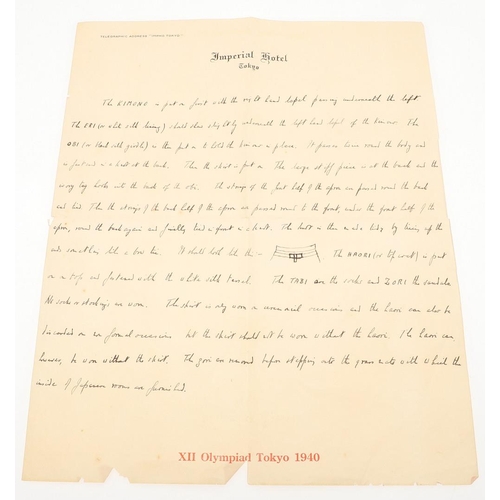 TELEGRAPHIC ADDRESS
Imperial Hotel
Tokyo
The KIMONO is put on first with the right hand lapel passing underneath the left
The ERI (or white silk lining) should show slightly underneath the left hand lapel of the kimono. The
OBI (or black silk girdle) is then put on to hold the kimono in place. It passes twice round the body and
is fastened in a knot at the back. Then the skirt is put on. The large stiff piece is at the back and the
into the back of the obi. The strings of the front half of the apron are passed round the back
and tied. Then the strings of the back half of the apron are passed round to the front, under the front half of the
apron, round the back again and finally tied in front in a knot. The knot is then made tidy by
ends something like a bow tie. It should look like this:- The HAORI (or coat) is put
on on top and fastened with the white silk tassel. The TABI are the socks and ZORI the sandals
No socks or stockings are worn. The skirt is only worn on ceremonial occasions and the haori can also be
discarded on informal occasions but the skirt should not be worn without the haori. The haori can
however, be worn without the skirt. The zori are removed before stepping onto the grass mats with which the
inside of Japanese rooms are furnished.
XII Olympiad Tokyo 1940